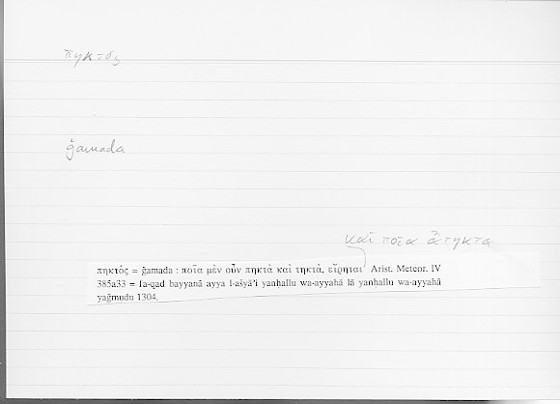 πηκτός
ǧamada
καὶ ποῖα ἄτηκτα
πηκτός = ǧamada : ποῖα μὲν οὖν πηκτὰ καὶ τηκτὰ, εἴρηται Arist. Meteor. IV
385a33 = fa-qad bayyanā ayya l-ašyāʾi yanḥallu wa-ayyahā lā yanḥallu wa-ayyahā
yaǧmudu 1304.